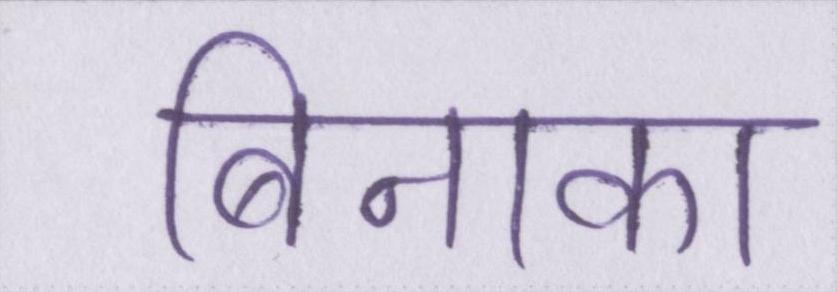 बिनाका